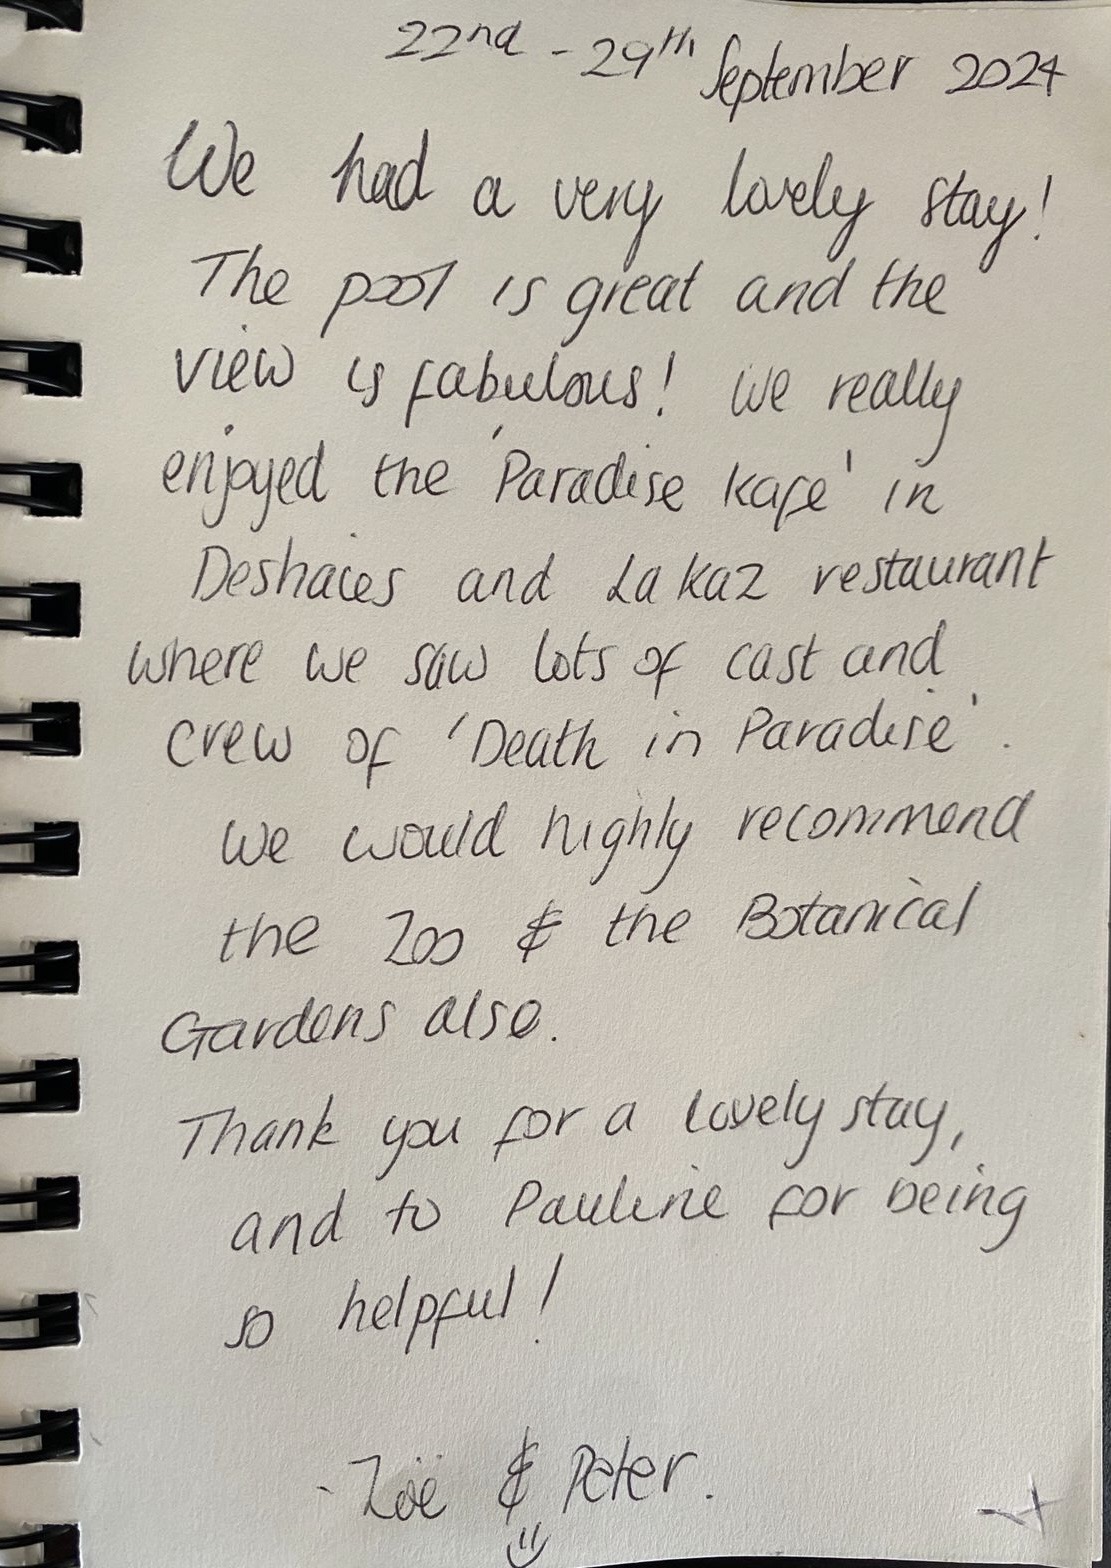 22nd - 29th September 2024
We had a very lovely stay!
The pool is great and the
view is fabulous! We really
enjoyed the 'Paradise Kafe' in
Deshaies and La Kaz restaurant
where we saw lots of cast and
crew of 'Death in Paradise'.
We would highly recommend
the Zoo & the Botanical
Gardens also.
Thank you for a lovely stay,
and to Pauline for being
so helpful!
- Zoë & Peter.